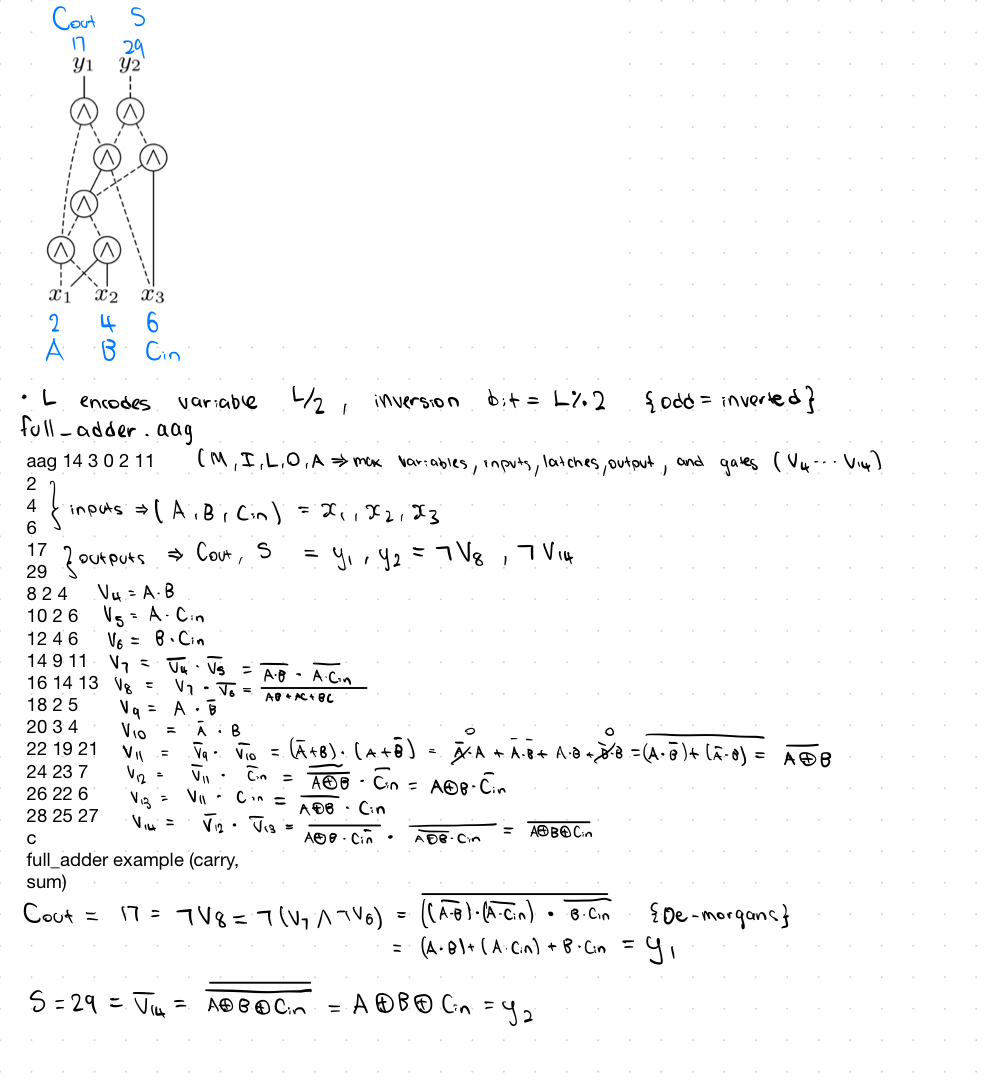 Cout S
17 29
y1 y2
∧ ∧
∧ ∧
∧
∧ ∧
x1 x2 x3
2 4 6
A B Cin
• L encodes variable L/2, inversion bit = L%2 {odd = inverted}
full_adder.aag
aag 14 3 0 2 11 (M, I, L, O, A ⇒ max variables, inputs, latches, output, and gates (V4 ... V14)
2
4 } inputs ⇒ (A, B, Cin) = x1, x2, x3
6
17 } outputs ⇒ Cout, S = y1, y2 = ¬V8, ¬V14
29
8 2 4 V4 = A·B
10 2 6 V5 = A·Cin
12 4 6 V6 = B·Cin
14 9 11 V7 = V̅4 · V̅5 = \overline{A·B} · \overline{A·Cin}
16 14 13 V8 = V7 · V̅6 = \overline{AB + AC + BC}
18 2 5 V9 = A · B̅
20 3 4 V10 = A̅ · B
22 19 21 V11 = V̅9 · V̅10 = (A̅+B)·(A+B̅) = A̅·A + A̅·B̅ + A·B + B̅·B = \overline{(A·B̅)+(A̅·B)} = \overline{A⊕B}
24 23 7 V12 = V̅11 · C̅in = \overline{\overline{A⊕B}} · C̅in = A⊕B·C̅in
26 22 6 V13 = V11 · Cin = \overline{A⊕B} · Cin
28 25 27 V14 = V̅12 · V̅13 = \overline{A⊕B · C̅in} · \overline{\overline{A⊕B} · Cin} = \overline{A⊕B⊕Cin}
c
full_adder example (carry,
sum)
Cout = 17 = ¬V8 = ¬(V7 ∧ ¬V6) = \overline{(\overline{(A·B)}·\overline{(A·Cin)} · \overline{B·Cin}} {De-morgans}
= (A·B)+(A·Cin) + B·Cin = y1
S = 29 = V̅14 = \overline{\overline{A⊕B⊕Cin}} = A⊕B⊕Cin = y2